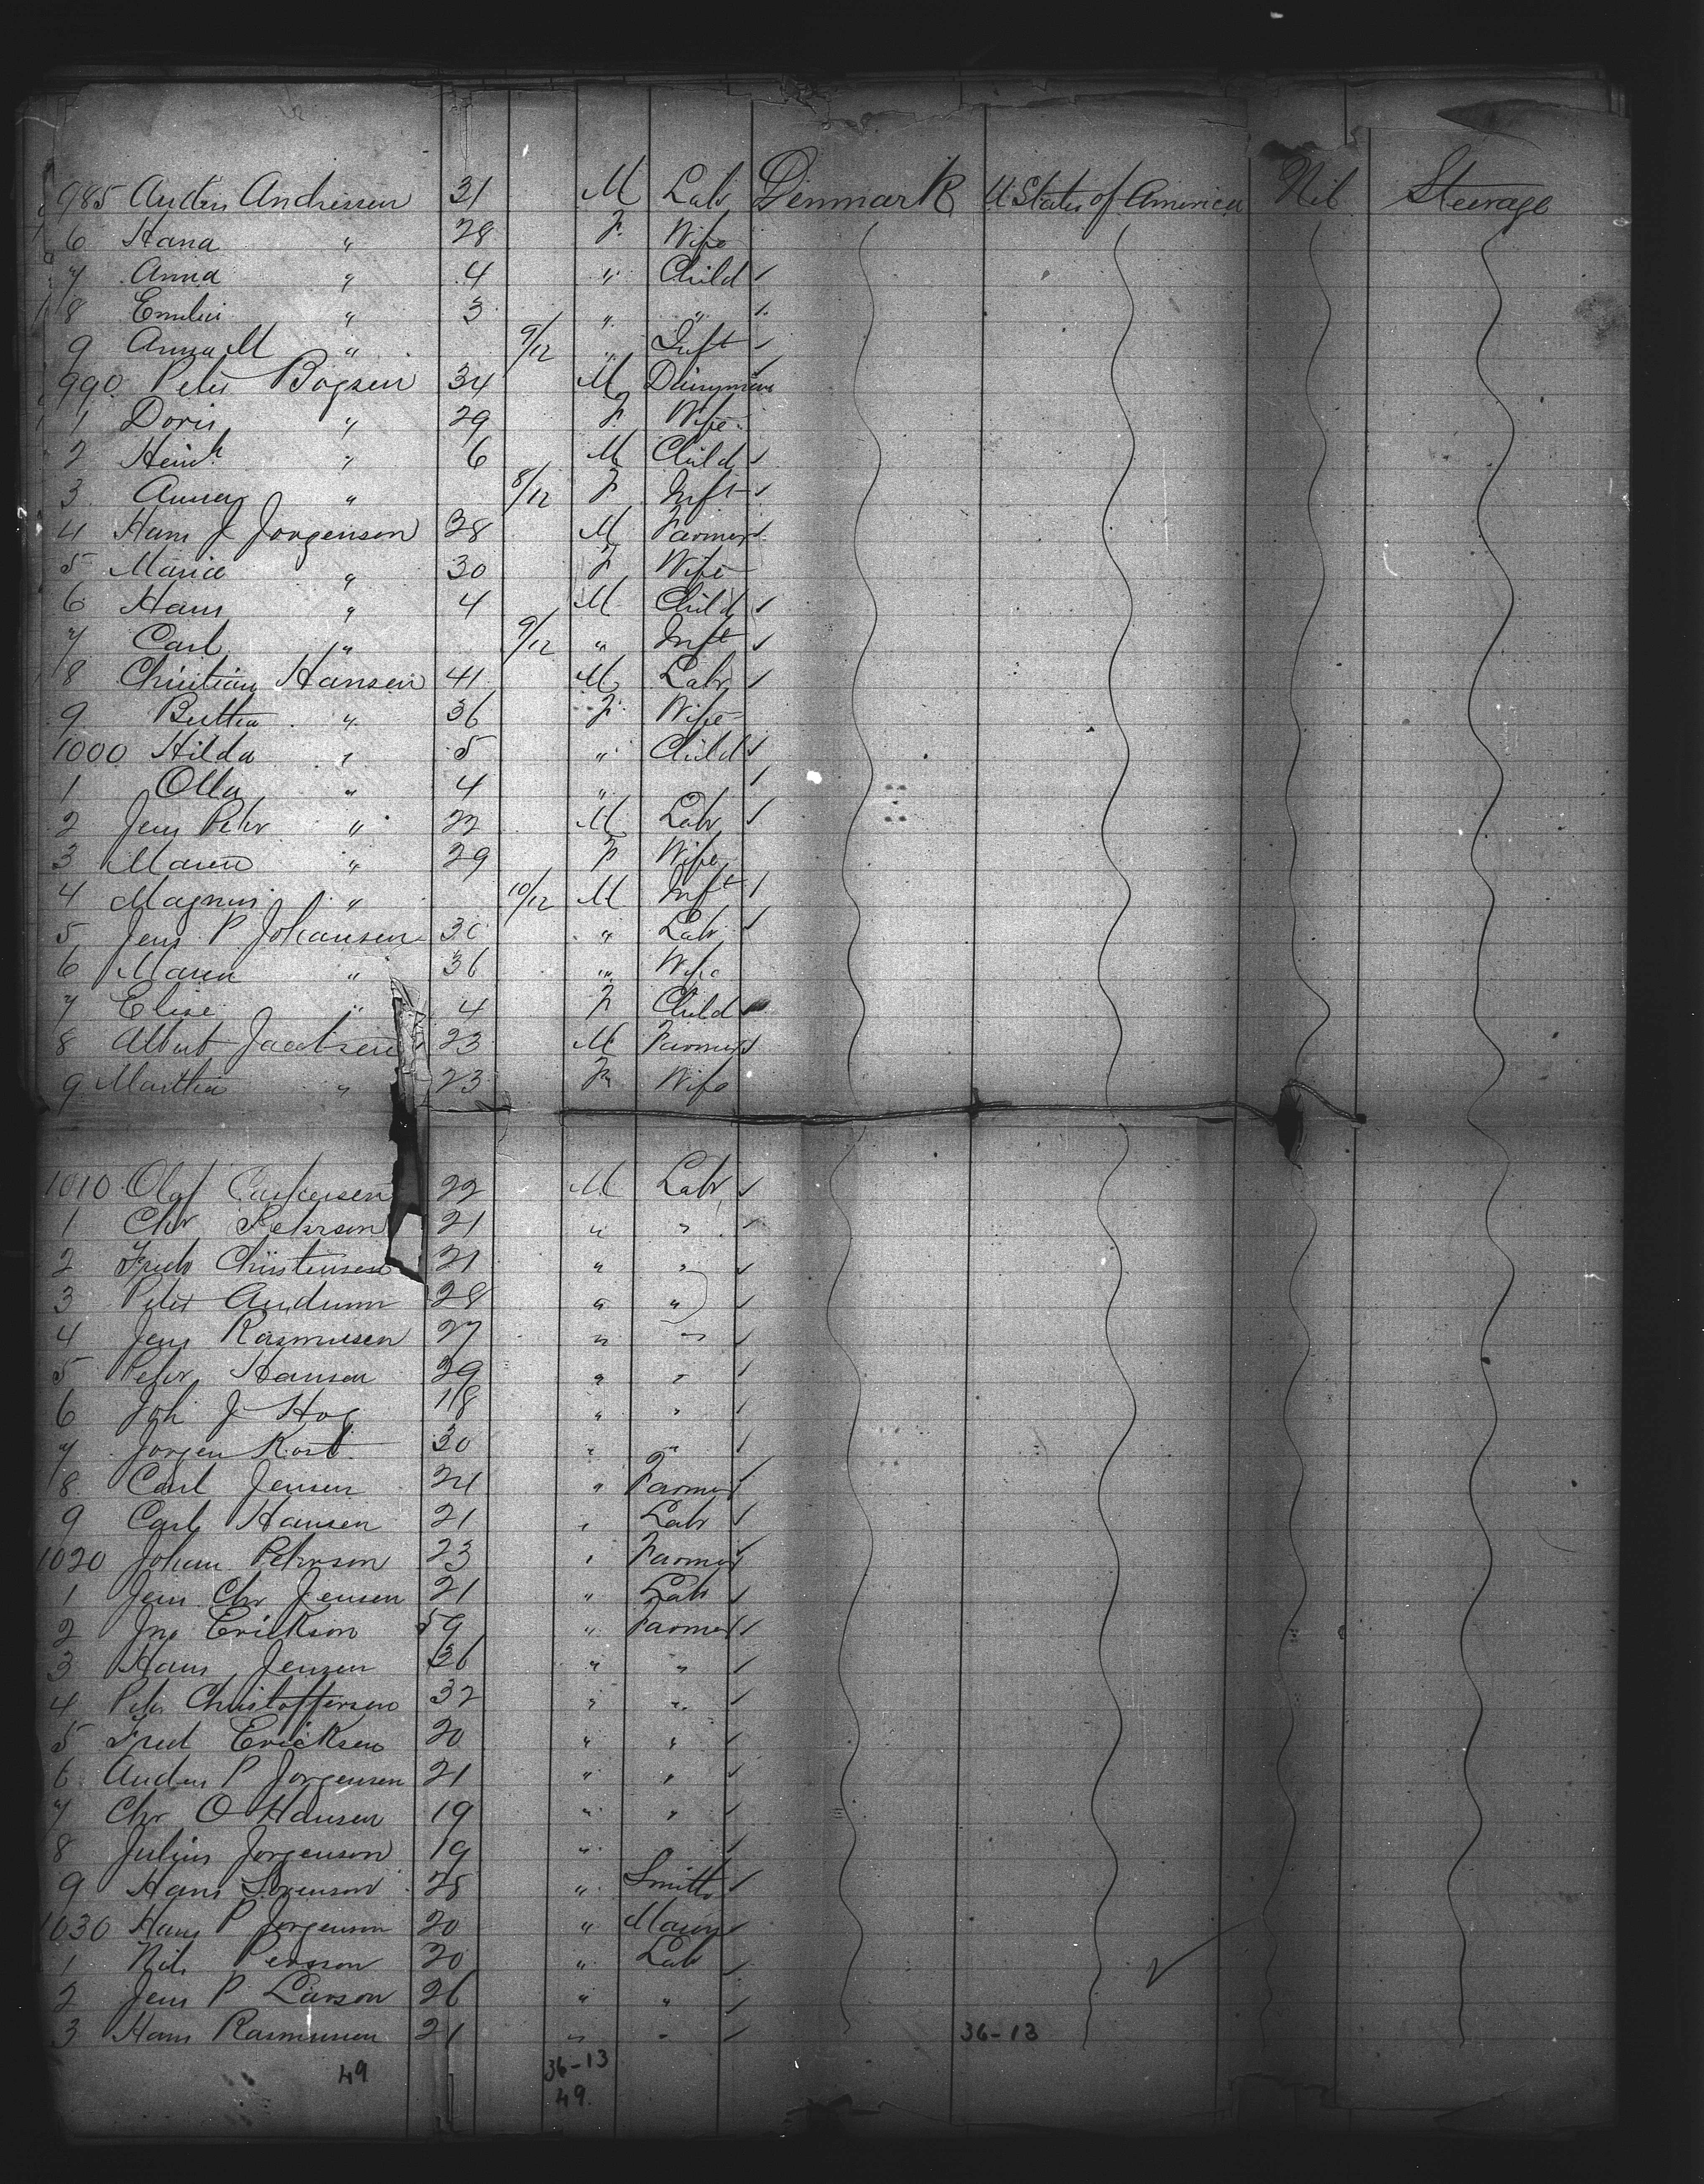 985 Anders Andressen 31 M Labr Denmark U States of America Nil Steerage
6 Hana " 28 F. Wife
7 Anna " 4 " Child
8 Emilie " 3 " "
9 Anna M " 9/12 " Inft
990 Peter Bogsen 34 M Dairyman
1 Doris " 29 F Wife
2 Heinh " 6 M Child
3 Anna " 8/12 F Inft
4 Hans J Jorgenson 28 M Farmer
5 Marie " 30 F Wife
6 Hans " 4 M Child
7 Carl " 9/12 " Inft
8 Christian Hansen 41 M Labr
9 Bertha " 36 F Wife
1000 Hilda " 5 " Child
1 Olla " 4 "
2 Jens Petr " 22 M Labr
3 Maren " 29 F Wife
4 Magnus " 10/12 M Inft
5 Jens P Johansen 36 " Labr
6 Maren " 36 " Wife
7 Elise " 4 F Child
8 Albert Jacobsen 23 M Farmer
9 Martha " 23 F Wife
1010 Olaf 22 M Labr
1 Chr Petersen 21 " "
2 Fredr Christensen 21 " "
3 Peter 28 " "
4 Jens Rasmussen 27 " "
5 Peter Hansen 39 " "
6 Joh J Hog 18 " "
7 Jorgen Kort 30 " "
8 Carl Jensen 24 " Farmer
9 Carl Hansen 21 " Labr
1020 Johan Peterson 23 " Farmer
1 Jens Chr Jensen 21 " Labr
2 Jno Erickson 59 " Farmer
3 Hans Jensen 36 " "
4 Peter Christoffersen 32 " "
5 Fred Ericksen 20 " "
6 Anders P Jorgensen 21 " "
7 Chr O Hansen 19 " "
8 Julius Jorgenson 19 "
9 Hans Sorenson 25 " Smith
1030 Hans P Jorgenson 20 " Mason
1 Nils Persson 20 " Labr
2 Jens P Larson 26 " "
3 Hans Rasmussen 21 " " 36-13
49 36-13
49.